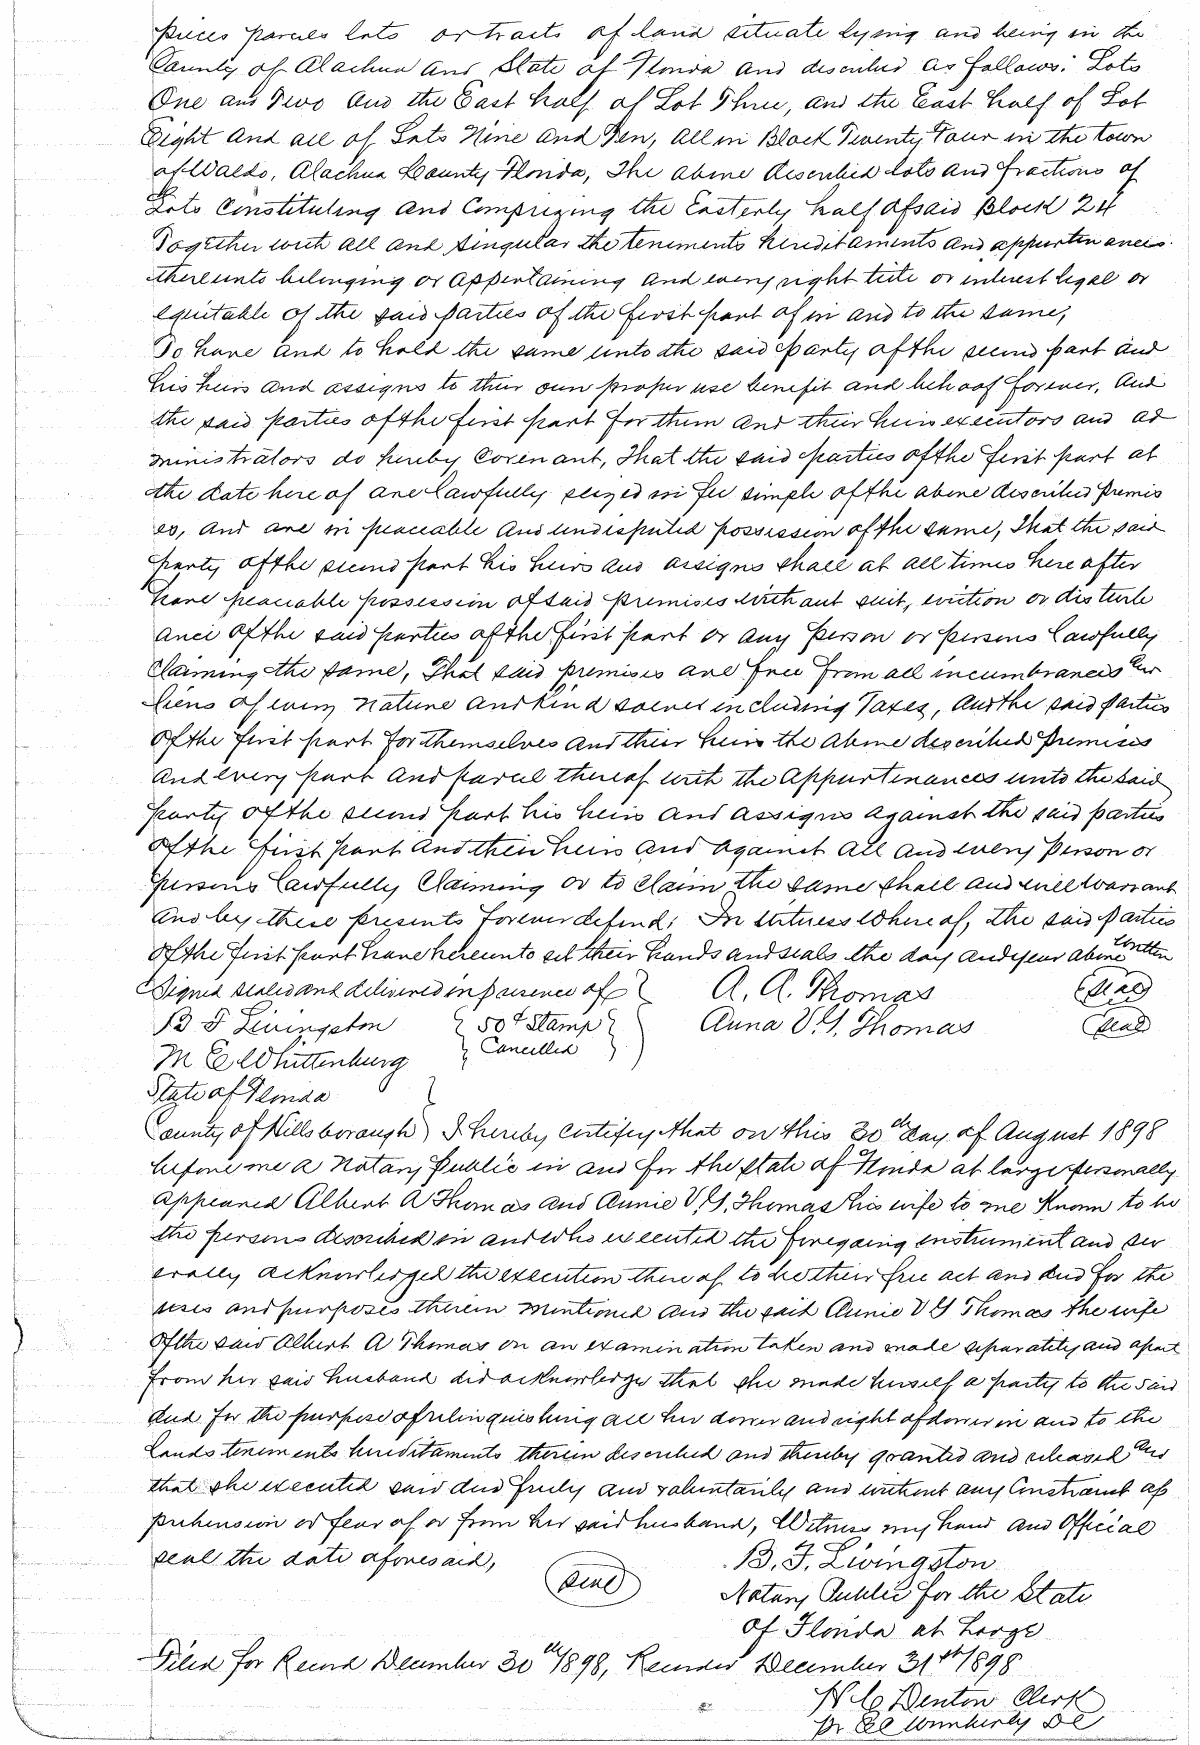 pieces parcels lots or tracts of land situate lying and being in the
County of Alachua and State of Florida and described as follows: Lots
One and Two and the East half of Lot Three, and the East half of Lot
Eight and all of Lots Nine and Ten, all in Block Twenty Four in the town
of Waldo, Alachua County Florida, The above described lots and fractions of
Lots Constituting and Comprizing the Easterly half of said Block 24
Together with all and singular the tenements hereditaments and appurtenances
thereunto belonging or appertaining and every right title or interest legal or
equitable of the said parties of the first part of in and to the same,
To have and to hold the same unto the said party of the second part and
his heirs and assigns to their own proper use benefit and behoof forever, And
the said parties of the first part for them and their heirs executors and ad
ministrators do hereby Covenant, That the said parties of the first part at
the date here of are lawfully seized in fee simple of the above described premis
es, and are in peaceable and undisputed possession of the same, That the said
party of the second part his heirs and assigns shall at all times here after
have peaceable possession of said premises without suit, eviction or disturb
ance of the said parties of the first part or any person or persons lawfully
Claiming the same, That said premises are free from all incumbrances and
liens of every nature and kind soever including Taxes, And the said parties
of the first part for themselves and their heirs the above described premises
and every part and parcel thereof with the appurtenances unto the said
party of the second part his heirs and assigns against the said parties
of the first part and their heirs and against all and every person or
persons lawfully claiming or to claim the same shall and will warrant
and by these presents forever defend; In witness whereof, the said parties
of the first part have hereunto set their hands and seals the day and year above written
Signed sealed and delivered in presence of A. A. Thomas (Seal)
B F Livingston 50¢ Stamp Anna V. G. Thomas (Seal)
M E Whittenburg Cancelled
State of Florida
County of Hillsborough I hereby certify that on this 30th day of August 1898
before me a Notary Public in and for the State of Florida at large personally
appeared Albert A Thomas and Annie V. G. Thomas his wife to me known to be
the persons described in and who executed the foregoing instrument and sev
erally acknowledged the execution there of to be their free act and deed for the
uses and purposes therein mentioned and the said Annie V G Thomas the wife
of the said Albert A Thomas on an examination taken and made separately and apart
from her said husband did acknowledge that she made herself a party to the said
deed for the purpose of relinquishing all her dower and right of dower in and to the
lands tenements hereditaments therein described and thereby granted and released and
that she executed said deed freely and voluntarily and without any Constraint ap
prehension or fear of or from her said husband, Witness my hand and Official
seal the date aforesaid, B. F. Livingston
(Seal) Notary Public for the State
of Florida at Large
Filed for Record December 30th 1898, Recorded December 31st 1898
H C Denton Clerk
pr Wimberly DC